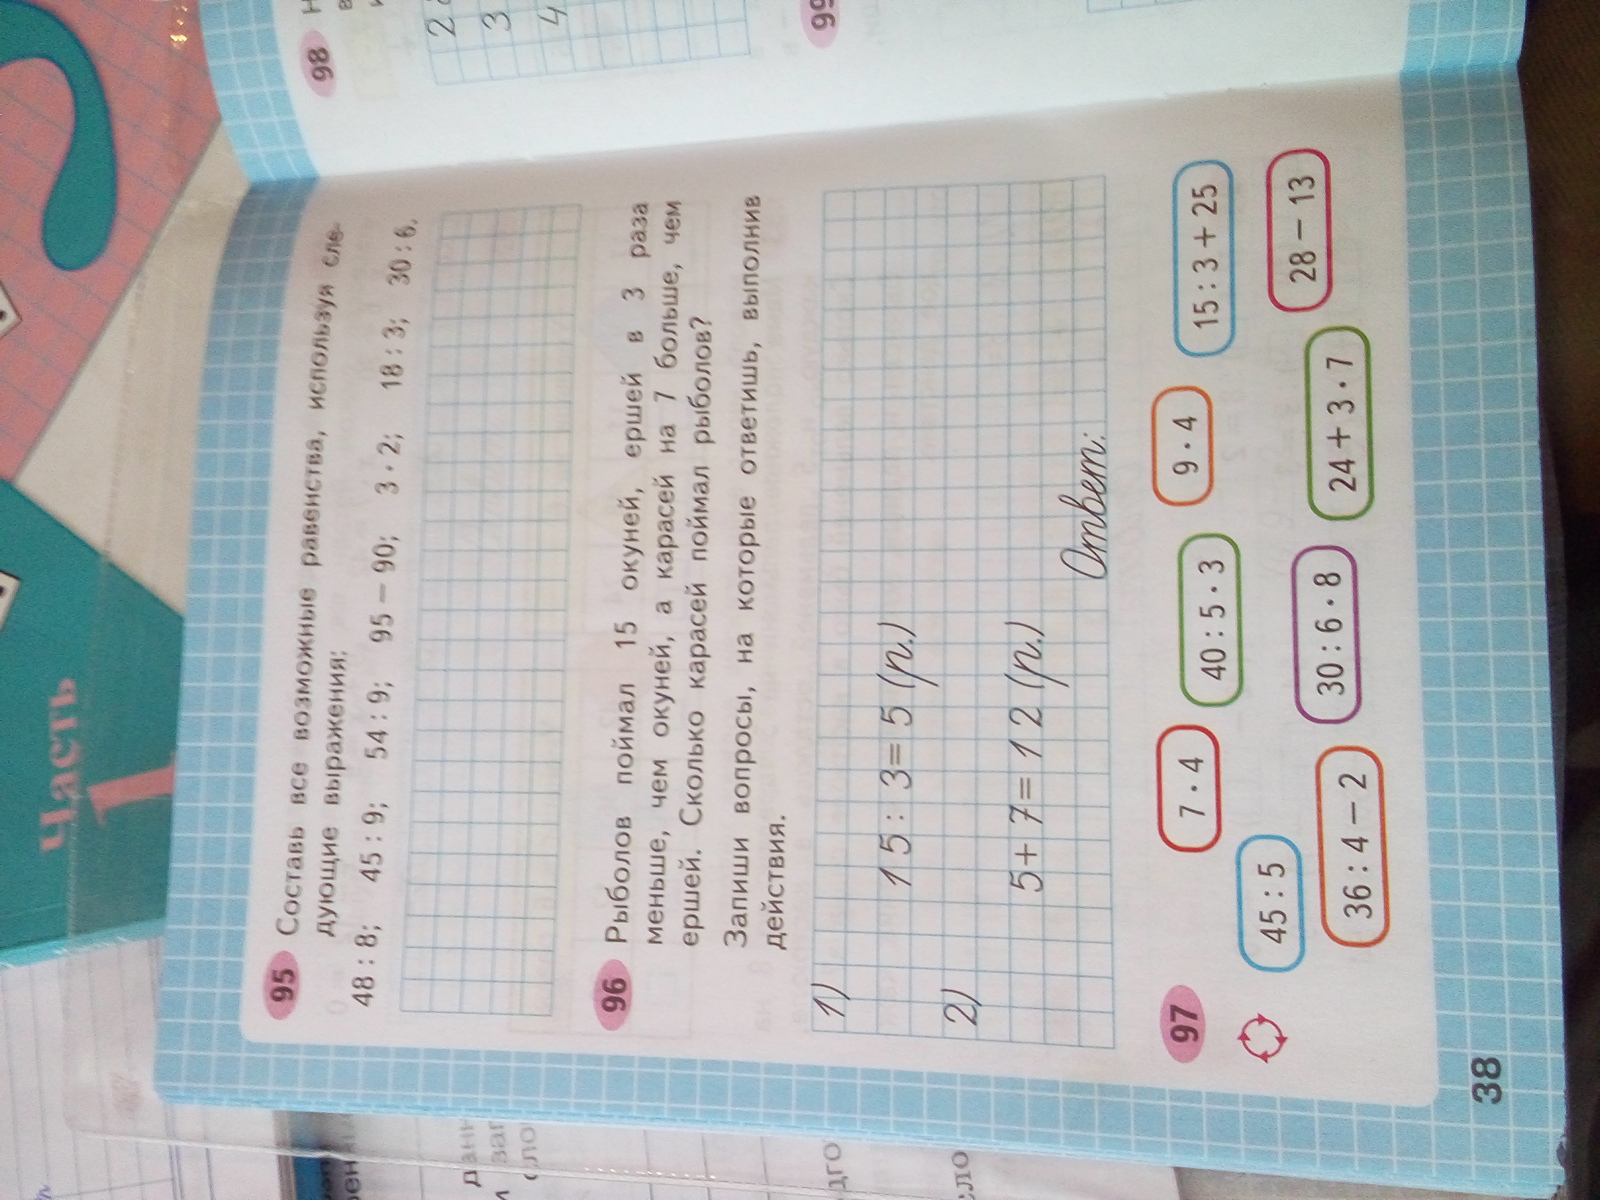 Часть
1
95 Составь все возможные равенства, используя сле-
дующие выражения:
48 : 8; 45 : 9; 54 : 9; 95 – 90; 3 · 2; 18 : 3; 30 : 6.
96 Рыболов поймал 15 окуней, ершей в 3 раза
меньше, чем окуней, а карасей на 7 больше, чем
ершей. Сколько карасей поймал рыболов?
Запиши вопросы, на которые ответишь, выполнив
действия.
1)
15 : 3 = 5 (р.)
2)
5 + 7 = 12 (р.)
Ответ:
97
7 · 4
40 : 5 · 3
9 · 4
15 : 3 + 25
45 : 5
36 : 4 – 2
30 : 6 · 8
24 + 3 · 7
28 – 13
38
98
2
3
4
99